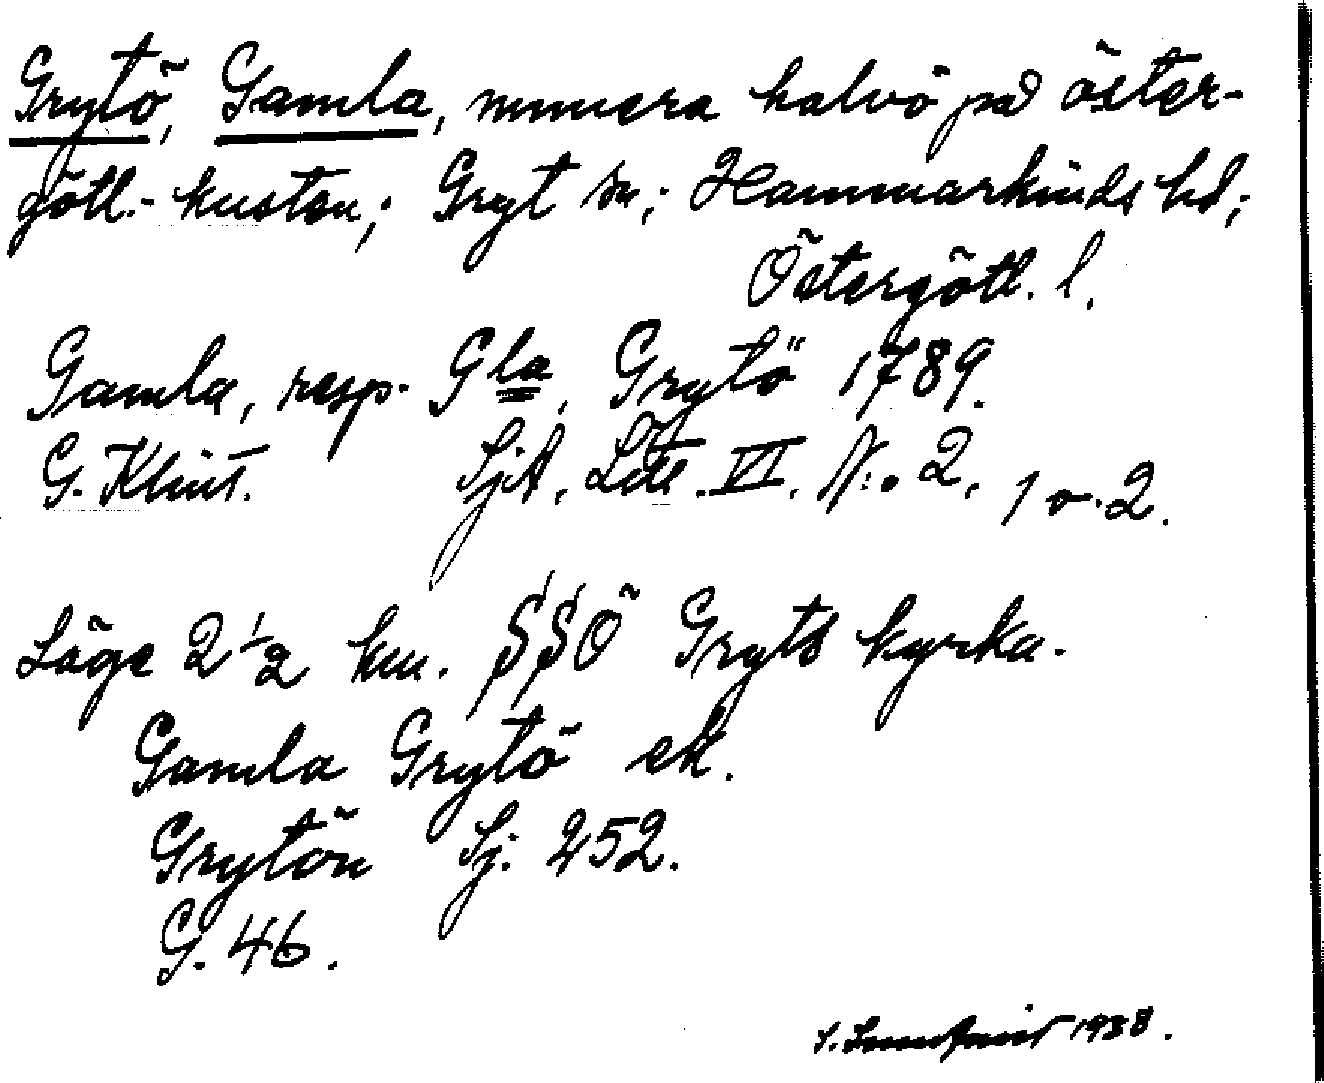 Grytö, Gamla, numera halvö på öster-
götl.-kusten; Gryt sn; Hammarkinds hd;
Östergötl. l.
Gamla, resp. Gla, Grytö 1789.
G. Klint. SjA, Litt. VI. N:o 2, 1 o. 2.
Läge 2 1/2 km. SSÖ Gryts kyrka.
Gamla Grytö ek.
Grytön Sj. 252.
G. 46.
1938.